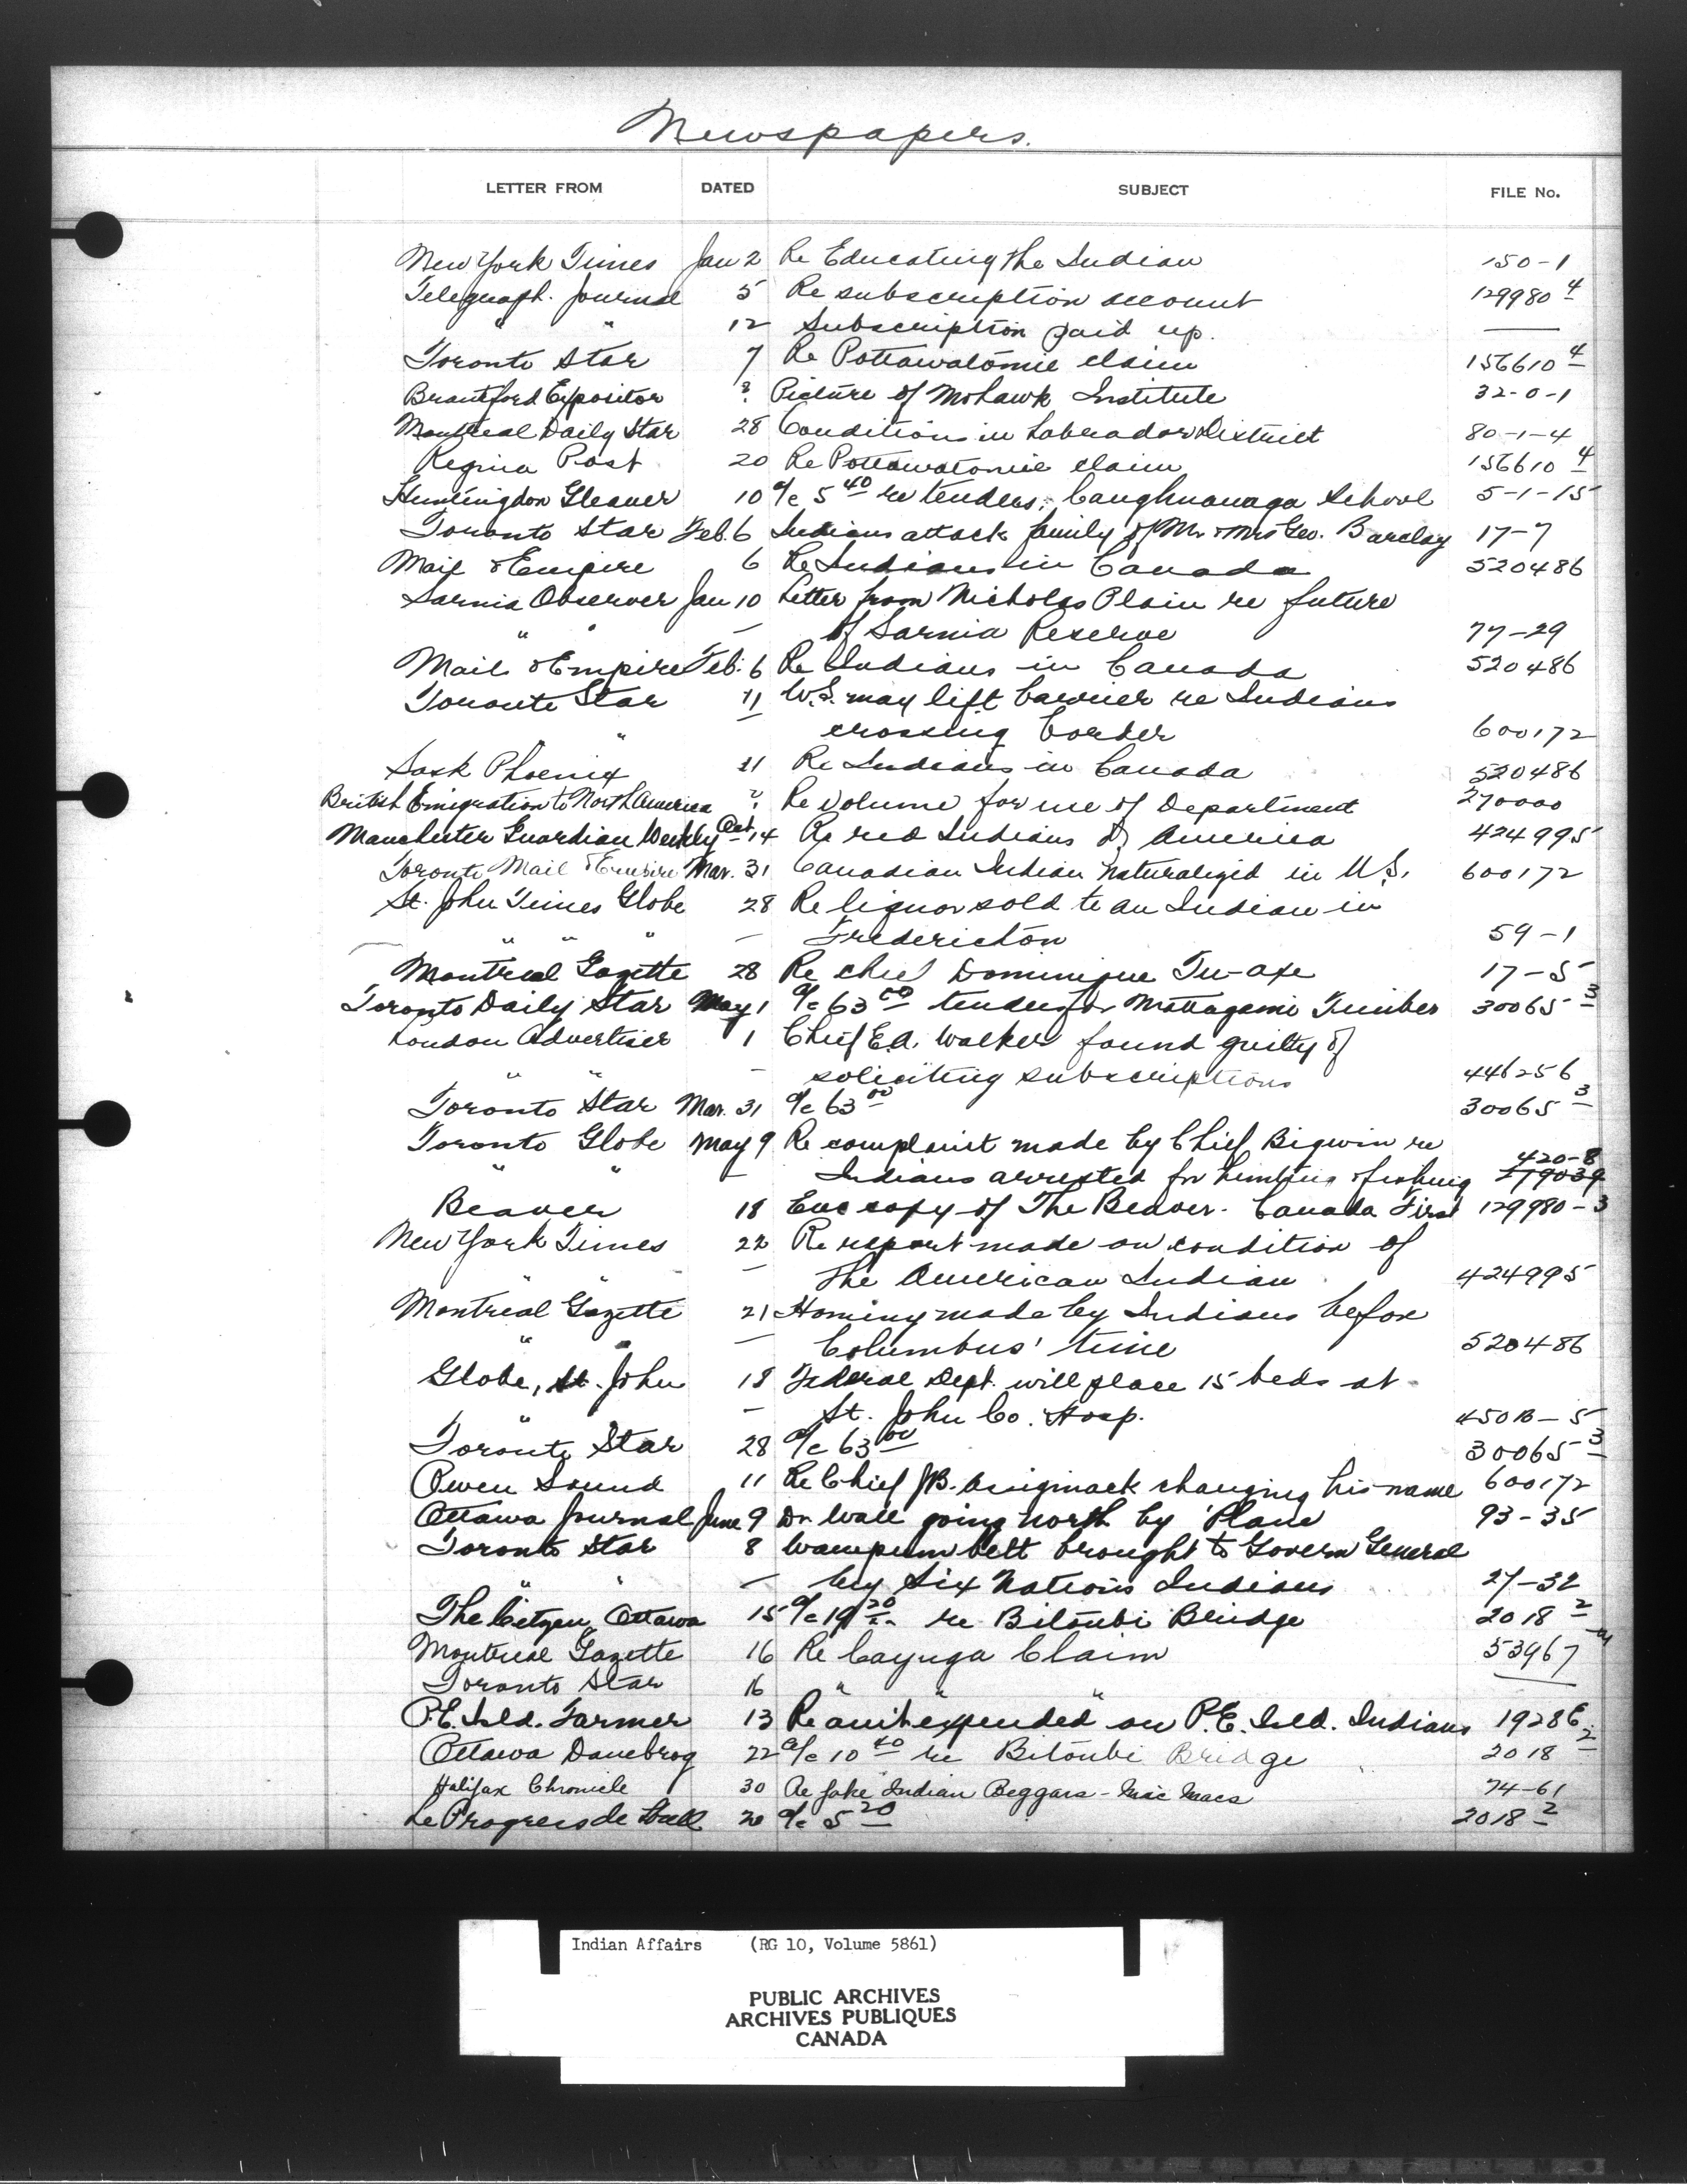 Newspapers.
LETTER FROM DATED SUBJECT FILE No.
New York Times Jan 2 Re Educating the Indian 150-1
Telegraph. Journal 5 Re subscription account 129980 4
" " 12 Subscription paid up. —
Toronto Star 7 Re Pottawatomie claim 156610 4
Brantford Expositor ? Picture of Mohawk Institute 32-0-1
Montreal Daily Star 28 Conditions in Labrador District 80-1-4
Regina Post 20 Re Pottawatomie claim 156610 4
Huntingdon Gleaner 10 a/c 5 40 re tenders, Caughnawaga School 5-1-15
Toronto Star Feb. 6 Indians attack family of Mr. & Mrs Geo. Barclay 17-7
Mail & Empire 6 Re Indians in Canada 520486
Sarnia Observer Jan 10 Letter from Nicholas Plain re future
" " — of Sarnia Reserve 77-29
Mail & Empire Feb. 6 Re Indians in Canada 520486
Toronto Star 11 U.S. may lift barrier re Indians
" — crossing border 600172
Sask Phoenix 11 Re Indians in Canada 520486
British Emigration to North America ? Re Volume for use of Department 270000
Manchester Guardian Weekly Oct 14 Re red Indians of America 424995
Toronto Mail & Empire Mar. 31 Canadian Indian naturalized in U.S. 600172
St. John Times Globe 28 Re liquor sold to an Indian in
" " " — Fredericton 59-1
Montreal Gazette 28 Re chief Dominique Tu-axe 17-5
Toronto Daily Star May 1 a/c 63 00 tenders for Mattagami Timber 30065 3
London Advertiser 1 Chief E.A. Walker found guilty of
" " — soliciting subscriptions 446256
Toronto Star Mar. 31 a/c 63 00 30065 3
Toronto Globe May 9 Re complaint made by Chief Bigwin re 420-8
" " — Indians arrested for hunting & fishing 279039
Beaver 18 Enc copy of The Beaver. Canada First 129980-3
New York Times 22 Re report made on condition of
" " — the American Indian 424995
Montreal Gazette 21 Hominy made by Indians before
" " — Columbus' time 520486
Globe, St. John 18 Federal Dept. will place 15 beds at
" — St. John Co. Hosp. 450B-5
Toronto Star 28 a/c 63 00 30065 3
Owen Sound 11 Re Chief J.B. Assiginack changing his name 600172
Ottawa Journal June 9 Dr Wall going north by Plane 93-35
Toronto Star 8 Wampum belt brought to Govern General
" " — by Six Nations Indians 27-32
The Citzen, Ottawa 15 a/c 19 20 re Bitoubi Bridge 2018 2
Montreal Gazette 16 Re Cayuga Claim 53967
Toronto Star 16 " " " —
P.E. Isld. Farmer 13 Re amt expended on P.E. Isld. Indians 19286
Ottawa Danebrog 22 a/c 10 40 re Bitoubi Bridge 2018 2
Halifax Chronicle 30 Re fake Indian Beggars - Mic Macs 74-61
Le Progress de Hull 20 a/c 5 20 2018 2
Indian Affairs (RG 10, Volume 5861)
PUBLIC ARCHIVES
ARCHIVES PUBLIQUES
CANADA